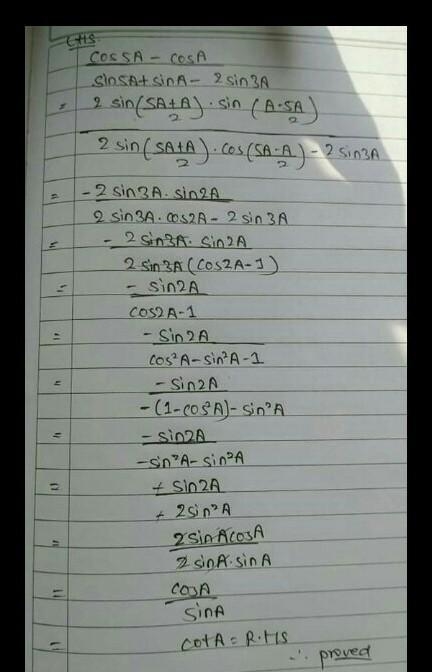 LHS
cos5A - cosA
sin5A + sinA - 2 sin3A
= 2 sin(5A+A)/2 . sin (A-5A)/2
2 sin(5A+A)/2 . cos(5A-A)/2 - 2 sin3A
= - 2 sin3A. sin2A
2 sin3A. cos2A - 2 sin 3A
= - 2 sin3A. sin2A
2 sin3A (cos2A-1)
= - sin2A
cos2A-1
= - sin2A
cos²A - sin²A - 1
= - sin2A
-(1-cos²A) - sin²A
= - sin2A
-sin²A - sin²A
= + sin2A
+ 2sin²A
= 2sinAcosA
2 sinA. sinA
= cosA
sinA
= cotA = R.HS
∴ proved